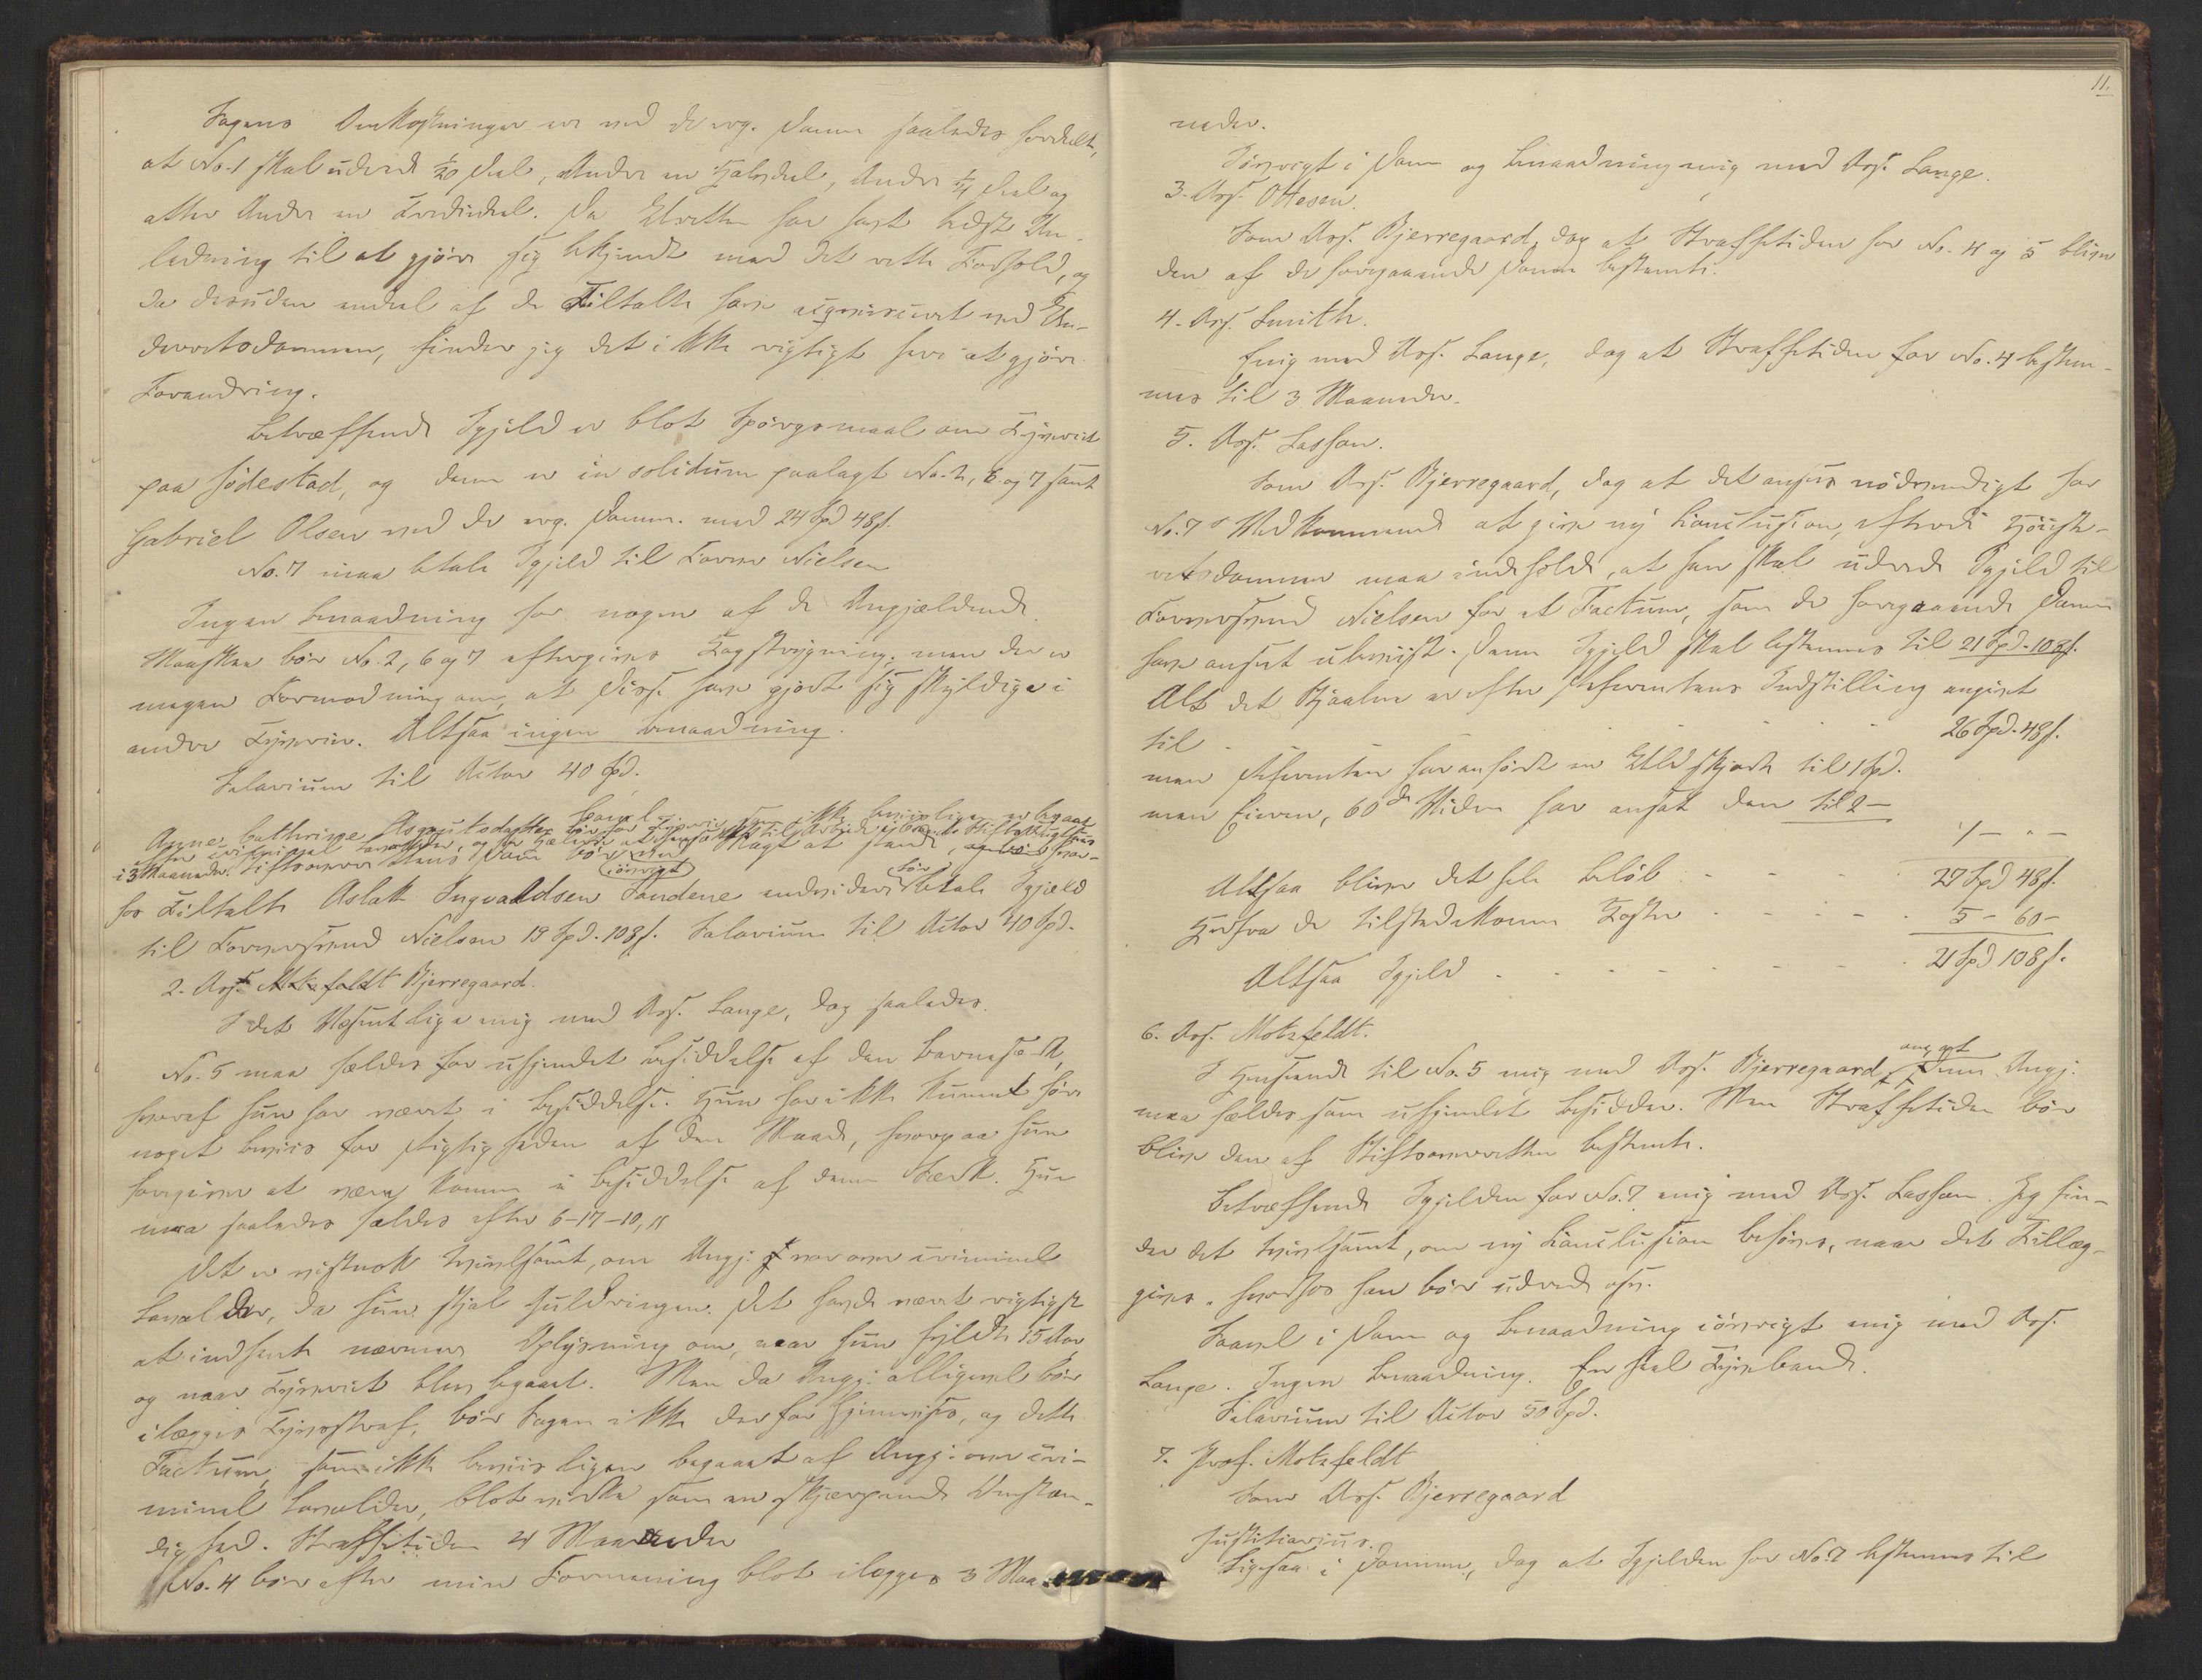 Sagens Omkostninger ere ved de ovg. Domme saaledes fordeelt,
at No. 1 skal udrede 1/20 Deel, Andre en Halvdeel, Andre 1/4 Deel og
atter Andre en Trediedeel. Da Retten har havt bedst An-
ledning til at gjöre sig bekjendt med det rette Forhold, og
da desuden endeel af de Tiltalte have acqviesceret ved Un-
derretsdommen, finder jeg det ikke rigtigt heri at gjöre
Forandring.
Betræffende Igjeld er blot Spörgsmaal om Tyveriet
paa Födestad, og denne er in solidum paalagt No. 2, 6 og 7 samt
Gabriel Olsen ved de ovg. Domme med 24 Spd 48 s.
No. 7 maa betale Igjeld til Nielsen
Ingen Benaadning for nogen af de Angjældende.
Maaskee bör No. 2, 6 og 7 eftergives Kagstrygning; men der er
megen Formodning om, at Disse have gjort sig skyldige i
andre Tyverier. Altsaa ingen Benaadning.
Salarium til Actor 40 Spd.
Anne Cathrine Asgautsdatter bör for Tyverie, ikke beviisligen er begaaet
i 3 Maaneder. Stiftsoverrettens Dom bör ved Magt at stande, og bör
hos Tiltalte Aslak Ingvaldsen Sandene endvidere bör betale Igjæld
iövrigt
til Nielsen 19 Spd. 108 s. Salarium til Actor 40 Spd.
2. Ass. Motzfeldt Bjerregaard.
I det Væsentlige enig med Ass. Lange, dog saaledes.
No. 5 maa fældes for uhjemlet Besiddelse af den
hvoraf hun har været i Besiddelse. Hun har ikke kunnet före
noget Beviis for Rigtigheden af den Maade, hvorpaa hun
foregiver at være kommen i Besiddelse af denne Særk. Hun
maa saaledes fældes efter 6-17-10, 11
Det er vistnok tvivlsomt, om Angj: var over criminel
Lavalder, da hun stjal Guldringen. Det havde været rigtigst
at indhente nærmere Oplysning om, naar hun fyldte 15 Aar
og naar Tyveriet blev begaaet. Men da Angj: alligevel bör
ilægges Tyvsstraf, bör Sagen ikke derfor hjemvises, og dette
Factum, som ikke beviisligen begaaet af Angj: over cri-
minel Lavalder, blot virke som en skjærpende Omstæn-
dighed. Straffetiden 4 Maaneder
No. 4 bör efter min Formening blot ilægges 3 Maa-
11.
neder.
Iövrigt i Dom og Benaadning enig med Ass. Lange.
3. Ass. Ottesen.
Som Ass. Bjerregaard, dog at Straffetiden for No. 4 og 5 bliver
den af de foregaaende Domme bestemte.
4. Ass. Smith.
Enig med Ass. Lange, dog at Straffetiden for No. 4 bestem-
mes til 3 Maaneder.
5. Ass. Lasson.
Som Ass. Bjerregaard, dog at det ansees nödvendigt for
No. 7s Vedkommende at give ny Conclusion, efterdi Höieste-
retsdommen maa indeholde, at han skal udrede Igjeld til
Nielsen for et Factum, som de foregaaende Domme
have anseet ubeviist. Denne Igjeld skal bestemmes til 21 Spd. 108 s.
Alt det Stjaalne er efter Referentens Indstilling angivet
til - - - - 26 Spd. 48 s.
men Referenten har anfört en Uldskjorte til 1 Spd.
men Eieren, 60de Viden har ansat den til 2 -
1 - " -
Altsaa bliver det hele Belöb - - - 27 Spd 48 s.
Herfra de tilstedekomne Koster - - - - 5 - 60 -
Altsaa Igjeld - - - - - - 21 Spd 108 s.
6. Ass. Motzfeldt.
I Henseende til No. 5 enig med Ass. Bjerregaard, denne Angj.
maa fældes som uhjemlet Besidder. Men Straffetiden bör
blive den af Stiftsoverretten bestemte.
Betræffende Igjelden for No. 7 enig med Ass. Lasson. Jeg fin-
der det tvivlsomt, om ny Conclusion behöves, naar det Tillæg
gives, hvorfor han bör udrede osv.
Saavel i Dom og Benaadning iövrigt enig med Ass.
Lange. Ingen Benaadning. En heel Tyvebande.
Salarium til Actor 50 Spd.
7. Prof. Motzfeldt
Som Ass. Bjerregaard
Justitiarius.
Ligesaa i Dommen, dog at Igjelden for No. 7 bestemmes til